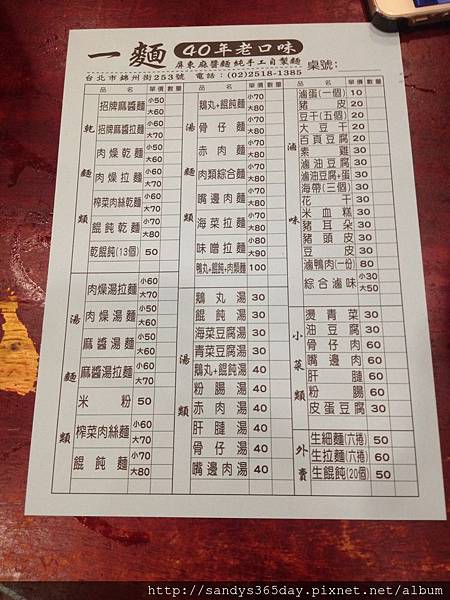 一麵 40年老口味
屏東麻醬麵 純手工自製麵 桌號：
台北市錦州街253號 電話：(02)2518-1385
品名 單價 數量
乾麵類
招牌麻醬麵 小50 大60
招牌麻醬拉麵 小60 大70
肉燥乾麵 小50 大60
肉燥拉麵 小60 大70
榨菜肉絲乾麵 小60 大70
餛飩乾麵 小70 大80
乾餛飩(13個) 50
湯麵類
肉燥湯拉麵 小60 大70
肉燥湯麵 小50 大60
麻醬湯麵 小50 大60
麻醬湯拉麵 小60 大70
米粉 50
榨菜肉絲麵 小60 大70
餛飩麵 小70 大80
品名 單價 數量
湯麵類
鵝丸+餛飩麵 小70 大80
骨仔麵 小70 大80
赤肉麵 小70 大80
肉類綜合麵 小70 大80
嘴邊肉麵 小70 大80
海菜拉麵 小70 大80
味噌拉麵 小80 大90
鴨丸+餛飩+肉類麵 100
湯類
鵝丸湯 30
餛飩湯 30
海菜豆腐湯 30
青菜豆腐湯 30
鵝丸+餛飩湯 40
粉腸湯 40
赤肉湯 40
肝腱湯 40
骨仔湯 40
嘴邊肉湯 40
品名 單價 數量
滷味
滷蛋(一個) 10
豬皮 20
豆干(五個) 20
大豆干 20
百頁豆腐 20
素雞 30
滷油豆腐 30
滷油豆腐+蛋 30
海帶(三個) 30
花干 30
米血糕 30
豬耳朵 30
豬頭皮 30
豆皮 30
滷鴨肉(一份) 80
綜合滷味 小30 大50
小菜類
燙青菜 30
油豆腐 30
骨仔肉 60
嘴邊肉 60
肝腱 60
粉腸 60
皮蛋豆腐 30
外賣
生細麵(六捲) 50
生拉麵(六捲) 60
生餛飩(20個) 50
http://sandys365day.pixnet.net/album